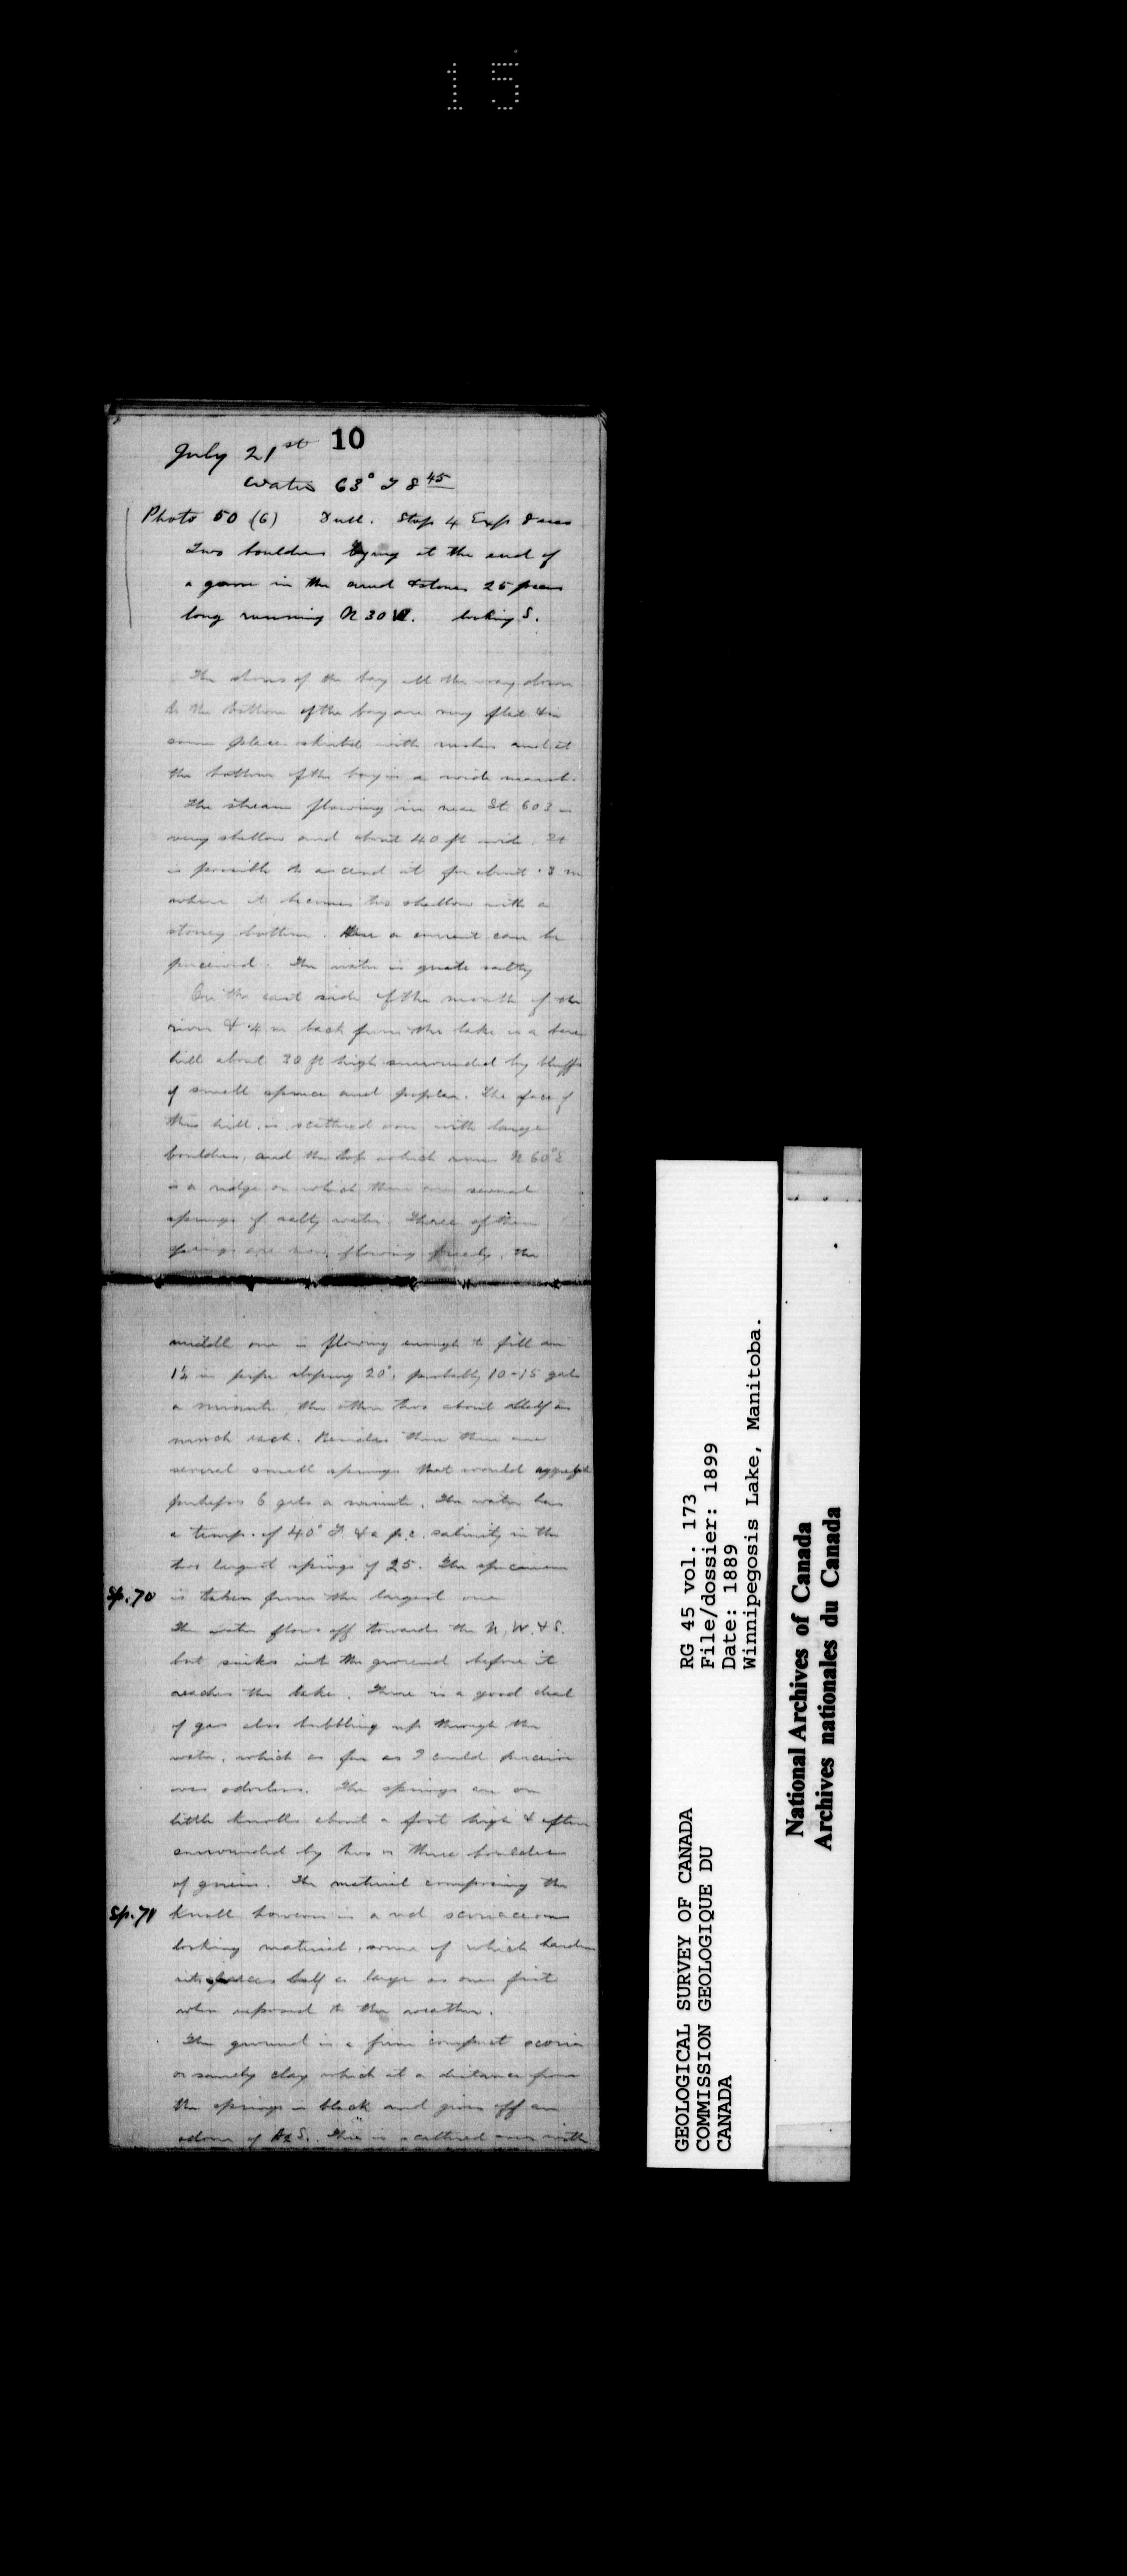 15
10
July 21st
Water 63° F 8 45
Photo 50 (6) Dull. Stop 4 Exp 8 secs
Two boulders lying at the end of
a in the sand & stones 25 paces
long running N 30 looking S.
The shores of the bay all the way down
to the bottom of the bay are very flat & in
some places skirted with rushes and at
the bottom of the bay is a wide marsh.
The stream flowing in near St 603 is
very shallow and about 40 ft wide. It
is possible to ascend it for about .3 m
where it becomes too shallow with a
stoney bottom. Here a current can be
perceived. The water is quite salty
On the east side of the mouth of the
river & .4 m back from the lake is a bare
hill about 30 ft high surrounded by bluffs
of small spruce and poplar. The face of
this hill is scattered over with large
boulders, and the top which runs N 60° E
is a ridge on which there are several
springs of salty water. Three of these
springs are now flowing freely, the
middle one is flowing enough to fill an
1½ in pipe sloping 20°, probably 10-15 gals
a minute, the other two about half as
much each. Besides these there are
several small springs that would aggregate
perhaps 6 gals a minute. The water has
a temp. of 40° F. & a p.c. salinity in the
two largest springs of 25. The specimen
Sp. 70 is taken from the largest one
The water flows off towards the N, W. & S.
but sinks into the ground before it
reaches the lake. There is a good deal
of gas also bubbling up through the
water, which as far as I could perceive
was odorless. The springs are on
little knolls about a foot high & often
surrounded by two or three boulders
of gneiss. The material composing the
Sp. 71 knoll however is a red scoriaceous
looking material, some of which hardens
into pieces half as large as ones fist
when exposed to the weather.
The ground is a firm compact scoria
or sandy clay which at a distance from
the springs is black and gives off an
odour of H2S. This is scattered over with
GEOLOGICAL SURVEY OF CANADA
COMMISSION GEOLOGIQUE DU
CANADA
RG 45 vol. 173
File/dossier: 1899
Date: 1889
Winnipegosis Lake, Manitoba.
National Archives of Canada
Archives nationales du Canada